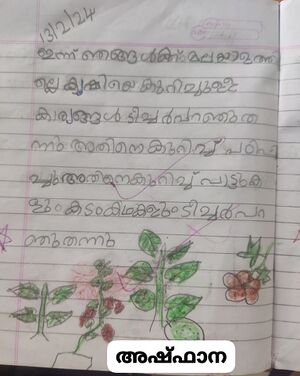 13/2/24
ഇന്ന് ഞങ്ങൾക്ക് മലയാളത്തി
ലെ കൃഷിയെ കുറിച്ചുള്ള
കാര്യങ്ങൾ ടീച്ചർ പറഞ്ഞുത
ന്നു അതിനെകുറിച്ച് പഠിപ്പി
ച്ചു അതിനെകുറിച്ച് പാട്ടുക
ളും കടംകഥകളും ടീച്ചർ പറ
ഞ്ഞുതന്നു
അഷ്ഫാന